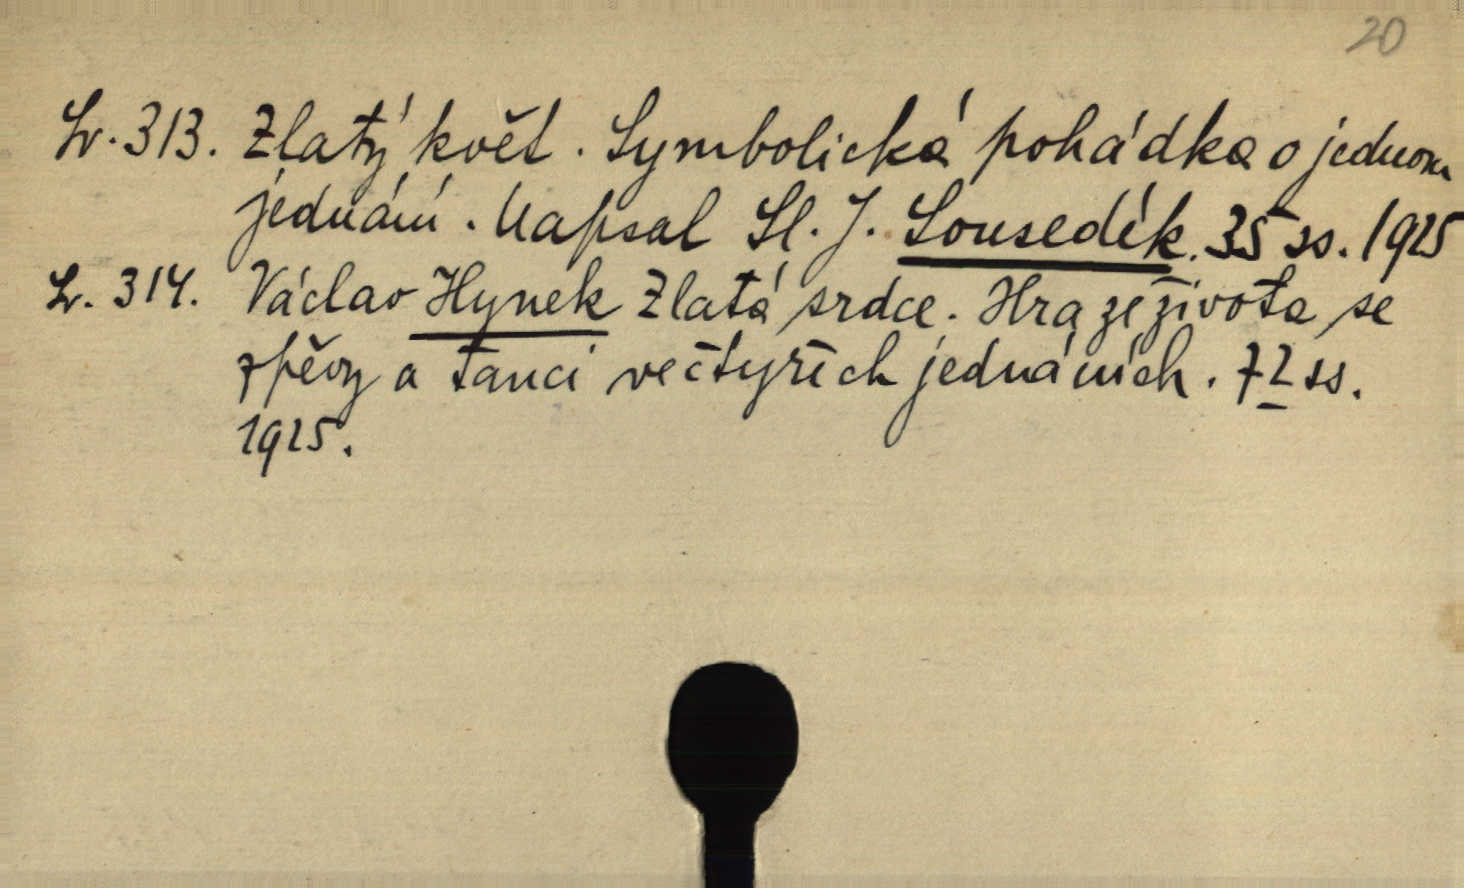 20
Sv. 313. Zlatý květ. Symbolická pohádka o jednom
jednání. Napsal Sl. J. Sousedík. 35 ss. 1925
Sv. 314. Václav Hynek Zlatá srdce. Hra ze života se
zpěvy a tanci ve čtyřích jednáních. 72 ss.
1925.